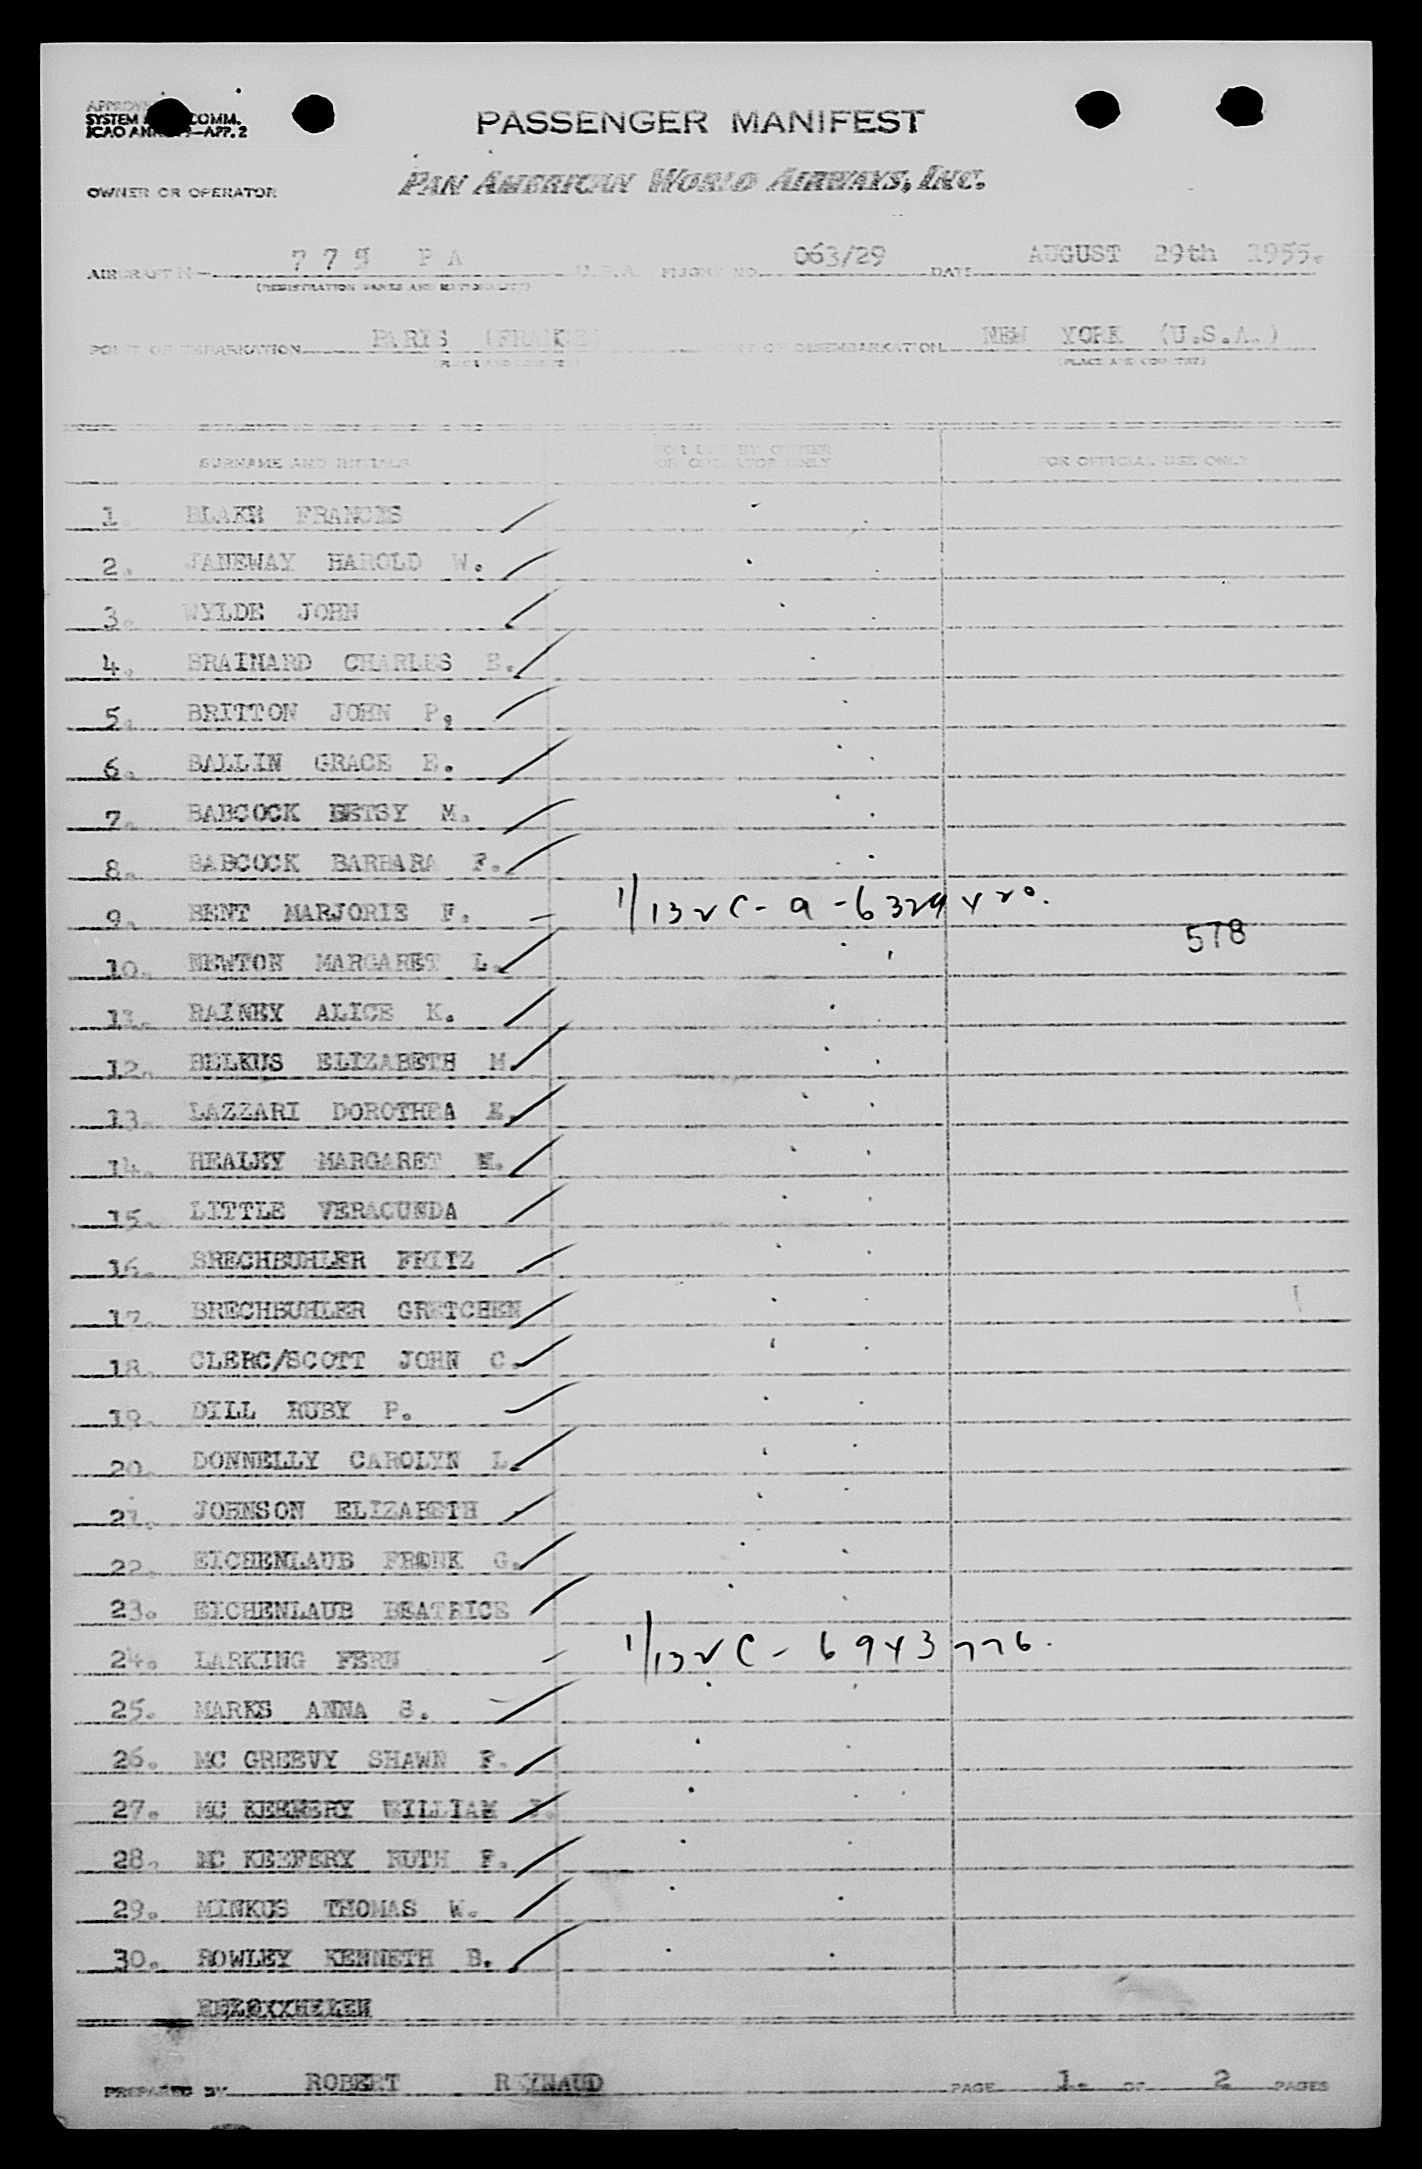 SYSTEM COMM.
ICAO ANNEX 9—APP. 2
PASSENGER MANIFEST
OWNER OR OPERATOR PAN AMERICAN WORLD AIRWAYS, INC.
AIRCRAFT N 779 PA U.S.A. FLIGHT NO. 063/29 DATE AUGUST 29th 1955.
(REGISTRATION MARKS AND NATIONALITY)
POINT OF EMBARKATION PARIS (FRANCE) POINT OF DISEMBARKATION NEW YORK (U.S.A.)
(PLACE AND COUNTRY) (PLACE AND COUNTRY)
SURNAME AND INITIALS FOR USE BY OWNER OR OPERATOR ONLY FOR OFFICIAL USE ONLY
1. BLAKE FRANCES
2. JANEWAY HAROLD W.
3. WYLDE JOHN
4. BRAINARD CHARLES E.
5. BRITTON JOHN P.
6. BALLIN GRACE E.
7. BABCOCK BETSY M.
8. BABCOCK BARBARA F.
9. BENT MARJORIE F. –
578
10. NEWTON MARGARET L.
11. RAINEY ALICE K.
12. BELKUS ELIZABETH M.
13. LAZZARI DOROTHEA E.
14. HEALEY MARGARET M.
15. LITTLE VERACUNDA
16. BRECHBUHLER FRITZ
17. BRECHBUHLER GRETCHEN
18. CLERC/SCOTT JOHN C.
19. DILL RUBY P.
20. DONNELLY CAROLYN L.
21. JOHNSON ELIZABETH
22. EICHENLAUB FRANK G.
23. EICHENLAUB BEATRICE
24. LARKING FERN –
25. MARKS ANNA S.
26. MC GREEVY SHAWN F.
27. MC KEEFERY WILLIAM J.
28. MC KEEFERY RUTH F.
29. MINKUS THOMAS W.
30. ROWLEY KENNETH B.
PREPARED BY ROBERT REYNAUD PAGE 1. OF 2 PAGES